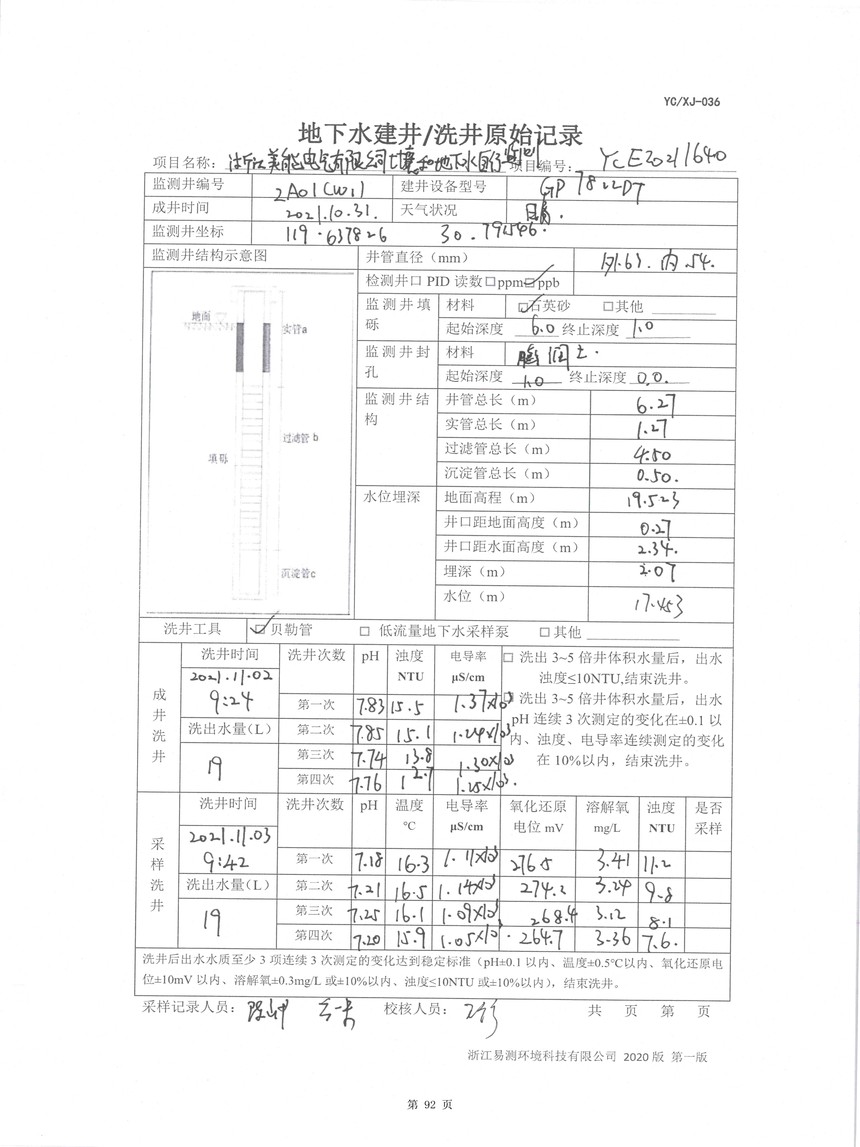 YC/XJ-036
地下水建井/洗井原始记录
项目名称：浙江美能电气有限公司土壤和地下水自行监测 项目编号：YCE20211640
监测井编号 2A01(W1) 建井设备型号 GP 7822DT
成井时间 2021.10.31. 天气状况 晴.
监测井坐标 119.637826 30.792546.
监测井结构示意图 井管直径（mm） 外.63. 内.54.
检测井口 PID 读数□ppm☑ppb
监测井填砾 材料 ☑石英砂 □其他
起始深度 6.0 终止深度 1.0
监测井封孔 材料 膨润土.
起始深度 1.0 终止深度 0.0.
监测井结构 井管总长（m） 6.27
实管总长（m） 1.27
过滤管总长（m） 4.50
沉淀管总长（m） 0.50.
水位埋深 地面高程（m） 19.523
井口距地面高度（m） 0.27
井口距水面高度（m） 2.34.
埋深（m） 2.07
水位（m） 17.453
地面
实管a
过滤管 b
填砾
沉淀管c
洗井工具 ☑贝勒管 □ 低流量地下水采样泵 □其他
成井洗井 洗井时间 洗井次数 pH 浊度 NTU 电导率 μS/cm
2021.11.02
9:24
第一次 7.83 15.5 1.37x10³
洗出水量(L) 第二次 7.85 15.1 1.24x10³
19 第三次 7.74 13.8 1.30x10³
第四次 7.76 12.7 1.25x10³.
□ 洗出 3~5 倍井体积水量后，出水
浊度≤10NTU,结束洗井。
☑ 洗出 3~5 倍井体积水量后，出水
pH 连续 3 次测定的变化在±0.1 以
内、浊度、电导率连续测定的变化
在 10%以内，结束洗井。
采样洗井 洗井时间 洗井次数 pH 温度 ℃ 电导率 μS/cm 氧化还原电位 mV 溶解氧 mg/L 浊度 NTU 是否采样
2021.11.03
9:42 第一次 7.18 16.3 1.11x10³ 276.5 3.41 11.2
洗出水量(L) 第二次 7.21 16.5 1.14x10³ 274.2 3.24 9.8
19 第三次 7.25 16.1 1.09x10³ 268.4 3.12 8.1
第四次 7.20 15.9 1.05x10³. 264.7 3.36 7.6.
洗井后出水水质至少 3 项连续 3 次测定的变化达到稳定标准（pH±0.1 以内、温度±0.5℃以内、氧化还原电
位±10mV 以内、溶解氧±0.3mg/L 或±10%以内、浊度≤10NTU 或±10%以内），结束洗井。
采样记录人员： 校核人员： 共 页 第 页
浙江易测环境科技有限公司 2020 版 第一版
第 92 页